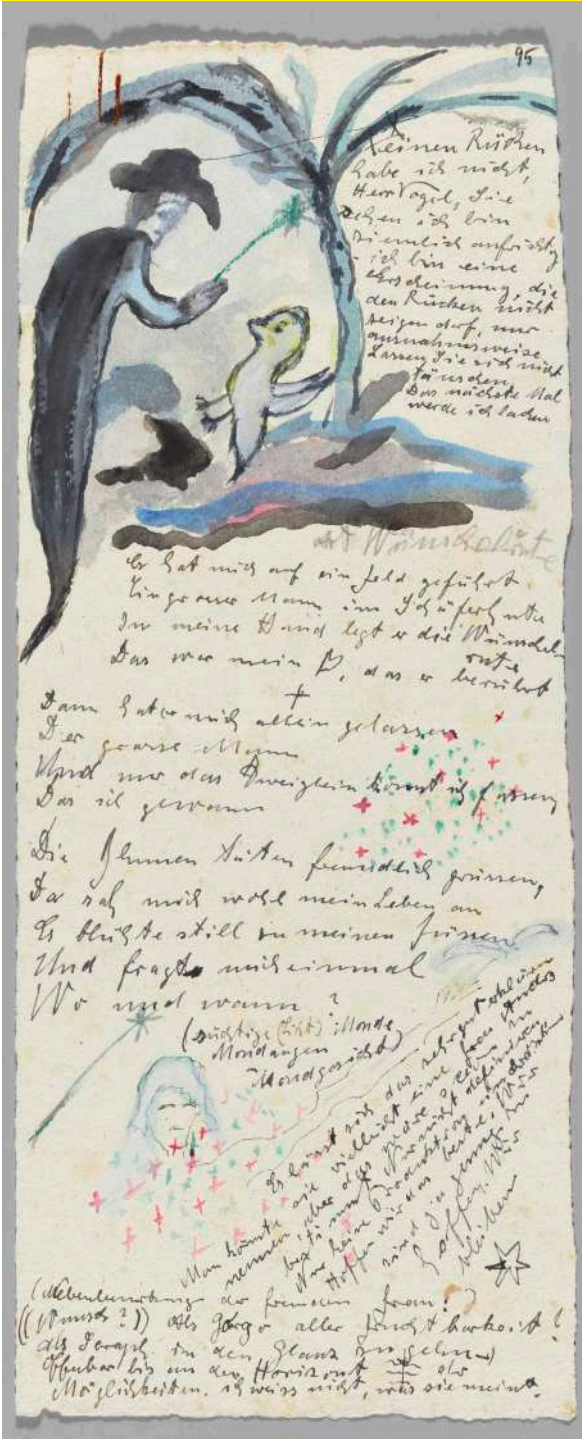 95
einen Rücken
habe ich nicht,
Herr Vogel, Sie
sehen ich bin
ziemlich aufrichtig
ich bin eine
Erscheinung, die
den Rücken nicht
zeigen darf, nur
ausnahmsweise
Lassen Sie sich nicht
täuschen
Das nächste Mal
werde ich lachen
Wünschelrute
Er hat mich auf ein Feld geführt
Ein grosser Mann im Schäferhute
In meine Hand legt er die Wünschel
rute
Das war mein, das er berührt
Dann hat er mich allein gelassen
Der grosse Mann
Und nur das Zweiglein konnt ich fassen
Das ich gewann
Die Blumen täten freundlich grüssen,
Da sah mich wohl mein Leben an
Es blühte still zu meinen Füssen
Und fragte mich einmal
Wo und wann?
(süchtige (Licht) Monde
Mondaugen
Mondgesicht)
Es lässt sich das sehr gut erklären
Man könnte sie vielleicht eine frau
nennen, aber das
bestimmt nicht definieren
Nur keine Produktion im
Hoffen wir das beste. Wir
sind ja genug im
Hoffen. Wir
bleiben
(Nebenbemerkung der fremden Frau!
((Wunsch?)) Als aller Furchtbarkeit!
als Seraph in den Glanz zu gehen)
Offenbar bis an den Horizont der
Möglichkeiten. ich weiss nicht, was sie meint.